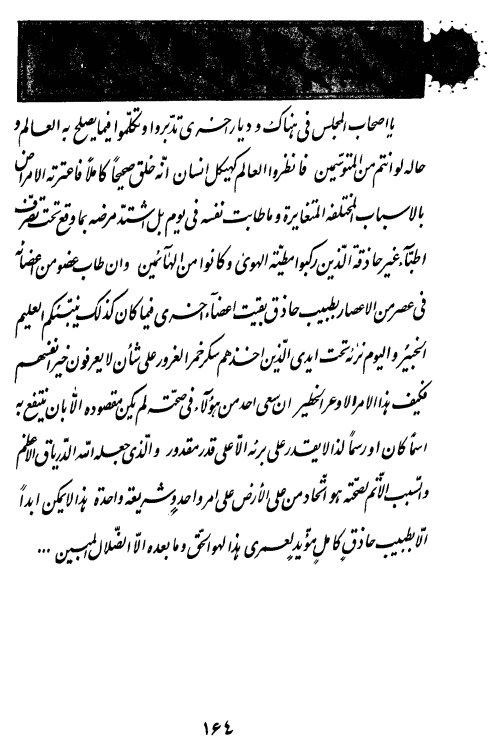 يا اصحاب المجلس فى هناك و ديار اخرى تدبّروا و تكلّموا فيما يصلح به العالم و
حاله لو انتم من المتوسّمين فانظروا العالم كهيكل انسان انّه خلق صحيحاً كاملاً فاعترته الامراض
بالاسباب المختلفة المتغايرة و ما طابت نفسه فى يوم بل اشتدّ مرضه بما وقع تحت تصرّف
اطبّآء غير حاذقة الّذين ركبوا مطيّة الهوى و كانوا من الهآئمين و ان طاب عضو من اعضائه
فى عصر من الاعصار بطبيب حاذق بقيت اعضآء اخرى فيما كان كذلك ينبّئكم العليم
الخبير و اليوم نريه تحت ايدى الّذين اخذهم سكر خمر الغرور على شأن لا يعرفون خير انفسهم
فكيف هذا الامر الاوعر الخطير ان سعى احد من هؤلآء فى صحّته لم يكن مقصوده الّا بان ينتفع به
اسماً كان او رسماً لذا لا يقدر على برئه الّا على قدر مقدور و الّذى جعله اللّه الدّرياق الاعظم
و السّبب الاتمّ لصحّته هو اتّحاد من على الأرض على امر واحد و شريعة واحدة هذا لا يمكن ابداً
الّا بطبيب حاذق كامل مؤيّد لعمرى هذا لهو الحقّ و ما بعده الّا الضّلال المبين ...
١٦٤